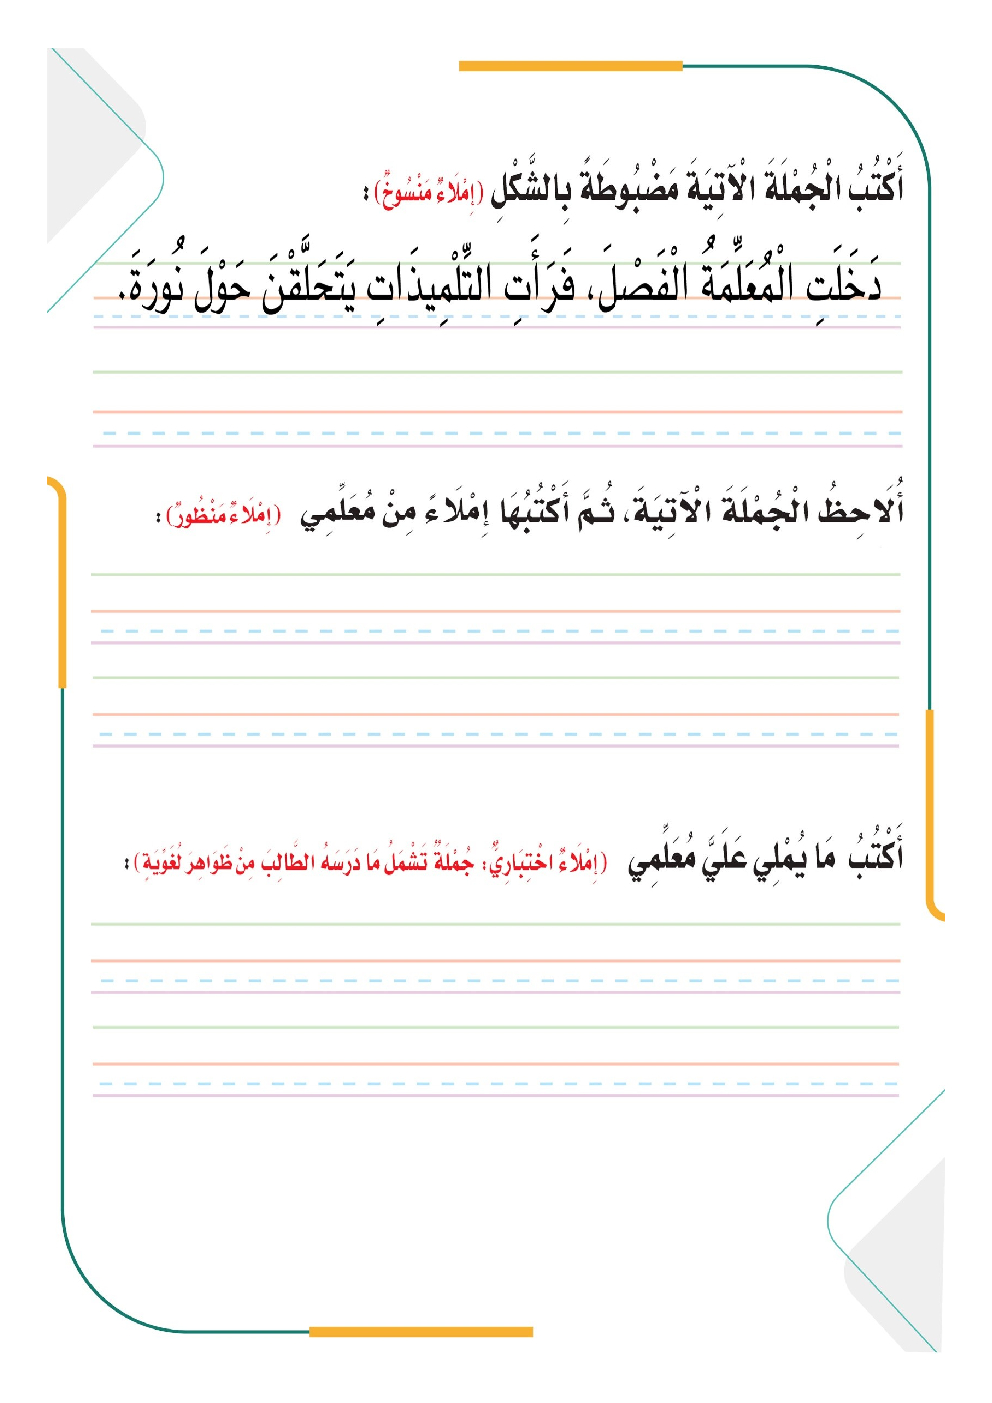 أَكْتُبُ الْجُمْلَةَ الْآتِيَةَ مَضْبُوطَةً بِالشَّكْلِ (إِمْلَاءٌ مَنْسُوخٌ) :
دَخَلَتِ الْمُعَلِّمَةُ الْفَصْلَ، فَرَأَتِ التِّلْمِيذَاتِ يَتَحَلَّقْنَ حَوْلَ نُورَةَ.
أُلَاحِظُ الْجُمْلَةَ الْآتِيَةَ، ثُمَّ أَكْتُبُهَا إِمْلَاءً مِنْ مُعَلِّمِي (إِمْلَاءٌ مَنْظُورٌ) :
أَكْتُبُ مَا يُمْلِي عَلَيَّ مُعَلِّمِي (إِمْلَاءٌ اخْتِبَارِيٌّ: جُمْلَةٌ تَشْمَلُ مَا دَرَسَهُ الطَّالِبَ مِنْ ظَوَاهِرَ لُغَوِيَةٍ) :